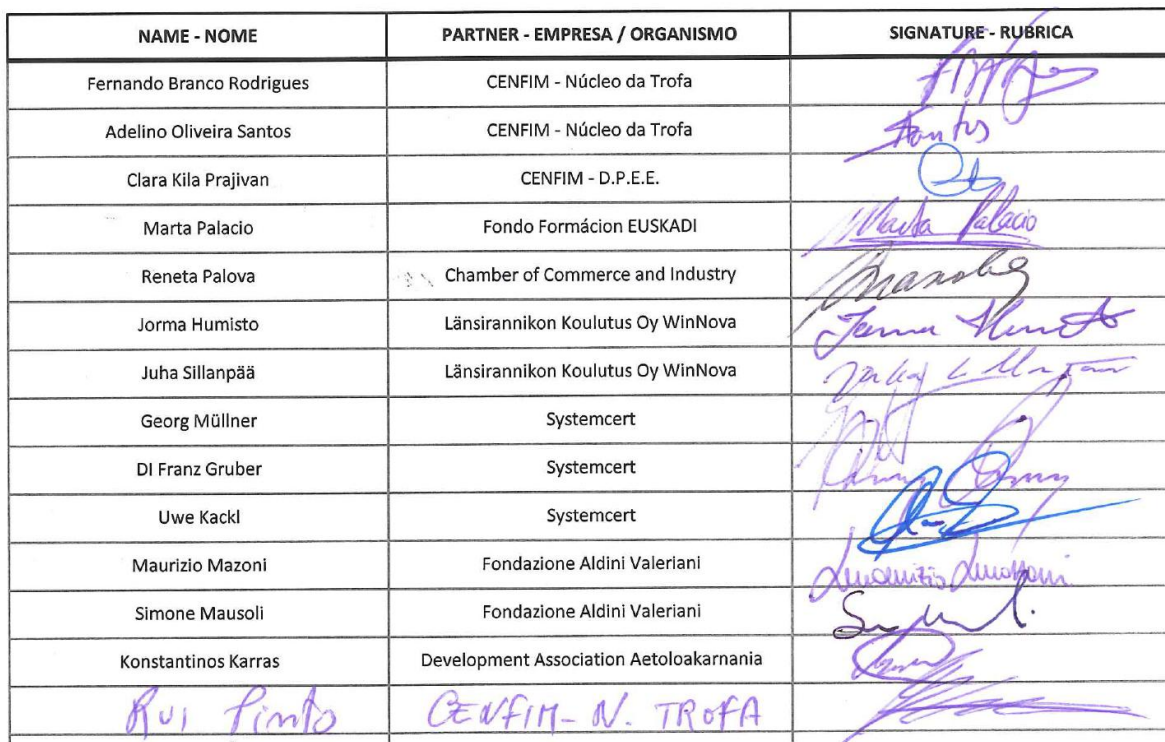 NAME - NOME PARTNER - EMPRESA / ORGANISMO SIGNATURE - RUBRICA
Fernando Branco Rodrigues CENFIM - Núcleo da Trofa
Adelino Oliveira Santos CENFIM - Núcleo da Trofa Santos
Clara Kila Prajivan CENFIM - D.P.E.E.
Marta Palacio Fondo Formácion EUSKADI Marta Palacio
Reneta Palova Chamber of Commerce and Industry
Jorma Humisto Länsirannikon Koulutus Oy WinNova
Juha Sillanpää Länsirannikon Koulutus Oy WinNova
Georg Müllner Systemcert
DI Franz Gruber Systemcert
Uwe Kackl Systemcert
Maurizio Mazoni Fondazione Aldini Valeriani
Simone Mausoli Fondazione Aldini Valeriani
Konstantinos Karras Development Association Aetoloakarnania
Rui Pinto CENFIM - N. TROFA